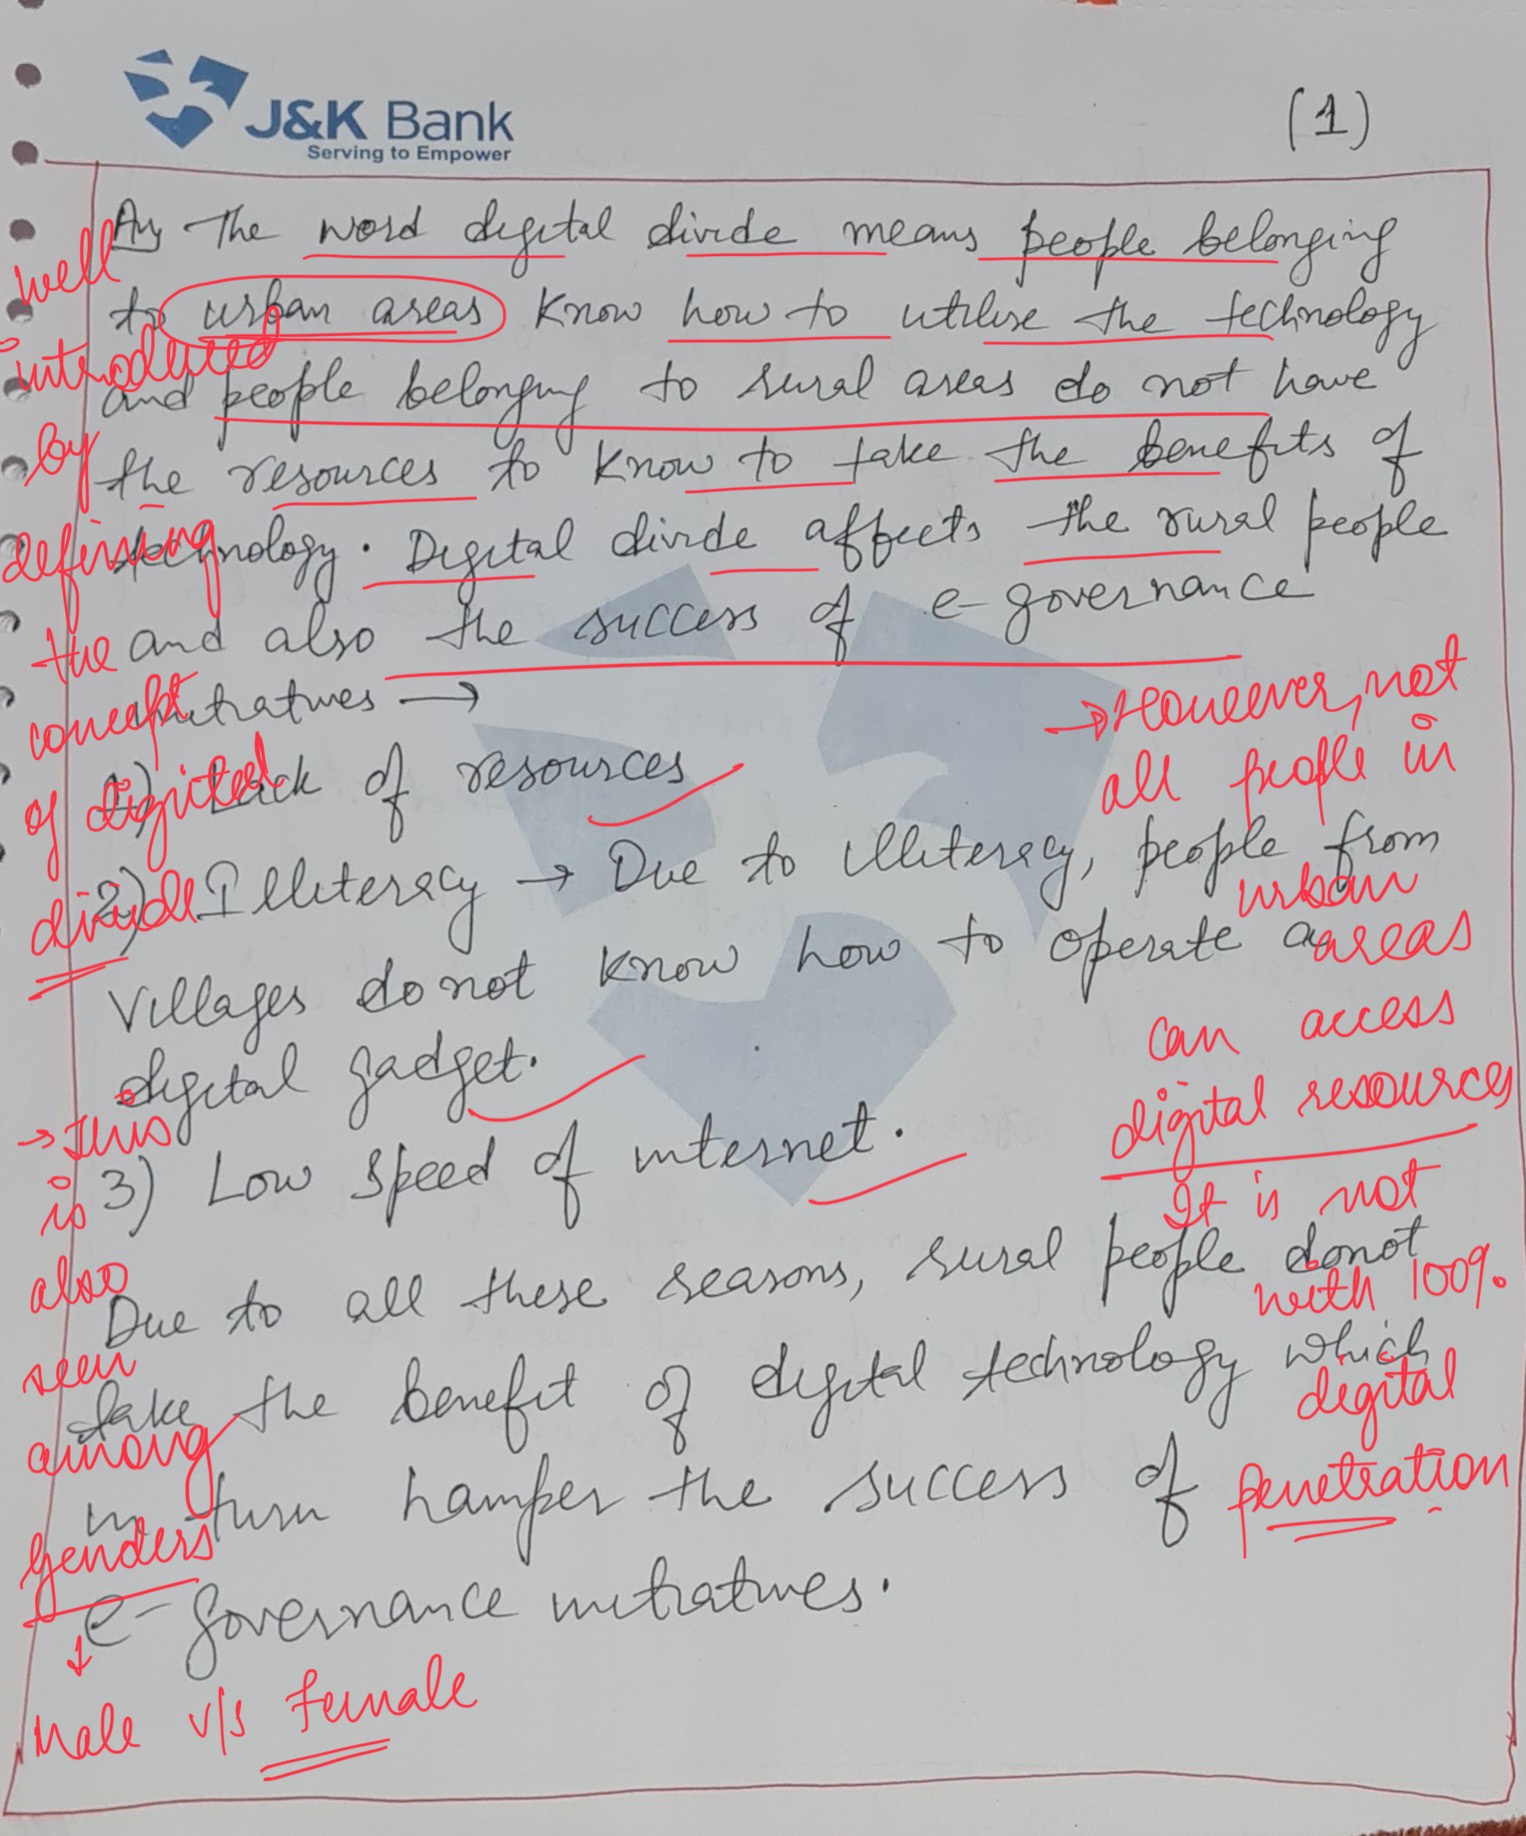 J&K Bank
Serving to Empower
(1)
Ans The word digital divide means people belonging
to urban areas know how to utilise the technology
and people belonging to rural areas do not have
the resources to know to take the benefits of
technology. Digital divide affects the rural people
and also the success of e-governance
initiatives →
1) Lack of resources
2) Illiteracy → Due to illiteracy, people from
villages do not know how to operate a
digital gadget.
3) Low speed of internet.
Due to all these reasons, rural people donot
take the benefit of digital technology which
in turn hamper the success of
e-governance initiatives.
well
introduced
by
defining
the
concept
of digital
divide
→ This
is
also
seen
among
genders
↓
Male v/s female
→ However, not
all people in
urban
areas
can access
digital resources
It is not
with 100%
digital
penetration